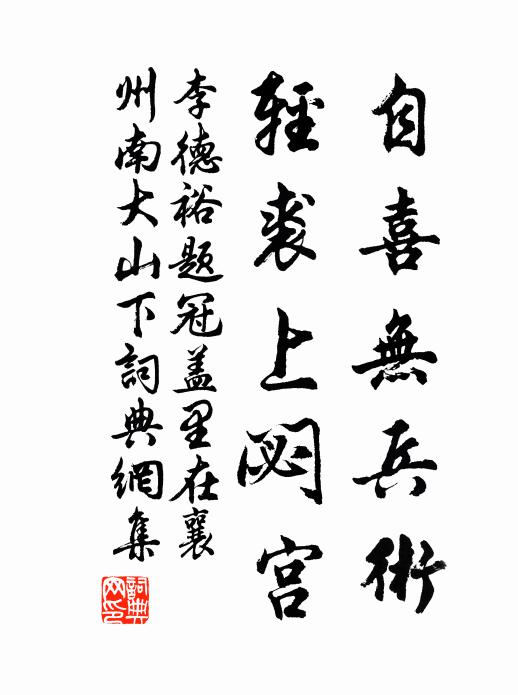 自喜無兵術
輕裘上閟宮
李德裕題冠盖里在襄
州南大山下詞典網集
詞典网印